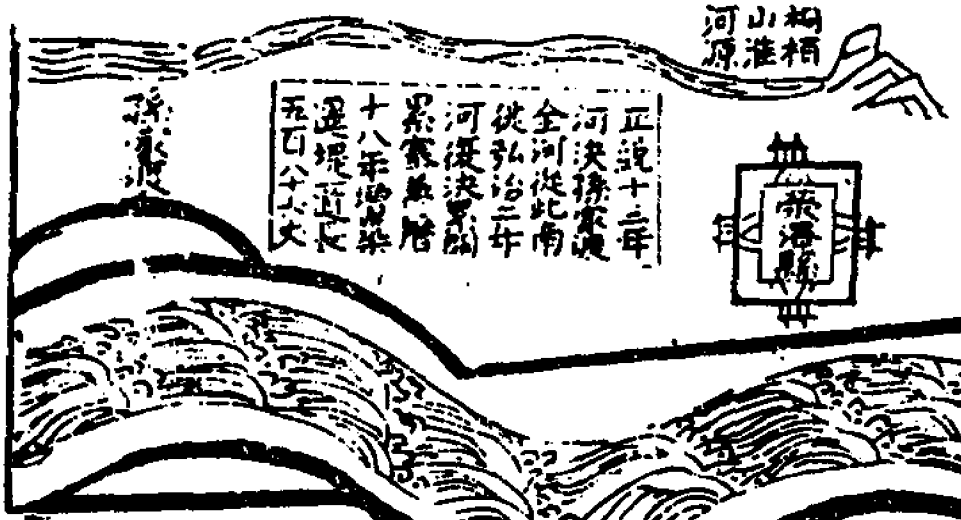 桐栢
山淮
河源
滎澤縣
正統十三年
河決孫家渡
全河從此南
徙弘治二年
河復決累開
累塞萬曆
十八年築
遥堤一道長
五百八十六丈
孫家渡